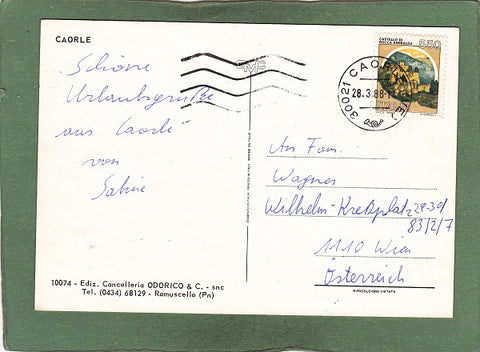 CAORLE
Schöne
Urlaubsgrüße
aus Caorle
von
Sabine
CASTELLO DI
ROCCA SINIBALDA
650
30021 CAORLE (VE)
28.3.88
An Fam.
Wagner
Wilhelm-Kreßplatz 29-30/
83/2/7
1110 Wien
Österreich
10074 - Ediz. Cancelleria ODORICO & C. - snc
Tel. (0434) 68129 - Ramuscello (Pn)
RIPRODUZIONE VIETATA